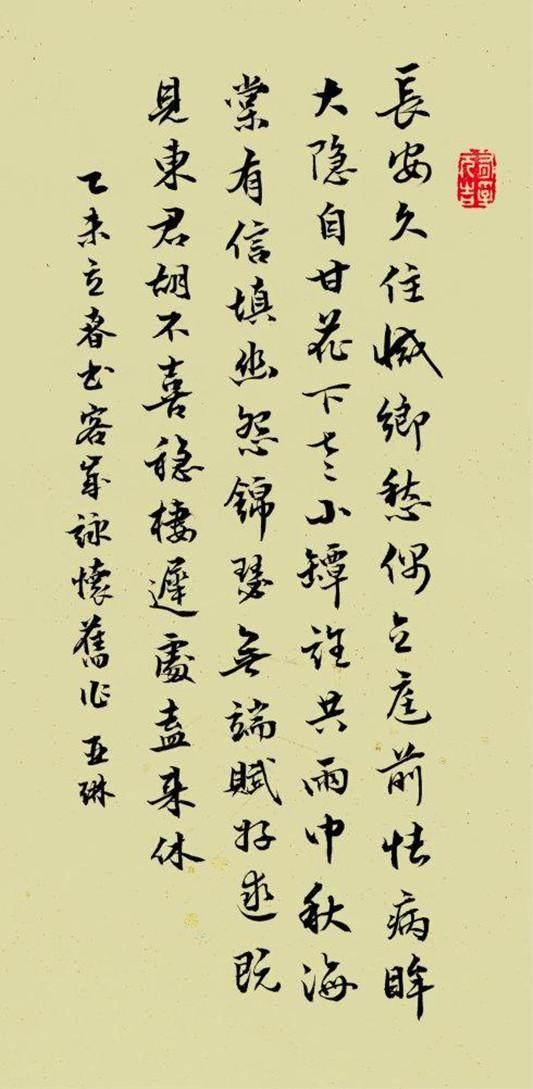 長安久住减鄉愁偶立庭前怯病眸
大隐自甘花下老小罈誰共雨中秋海
棠有信填幽怨錦瑟無端賦好逑既
見東君胡不喜稳棲遲處盍来休
乙未立春书客岁詠懷舊作 亚琳